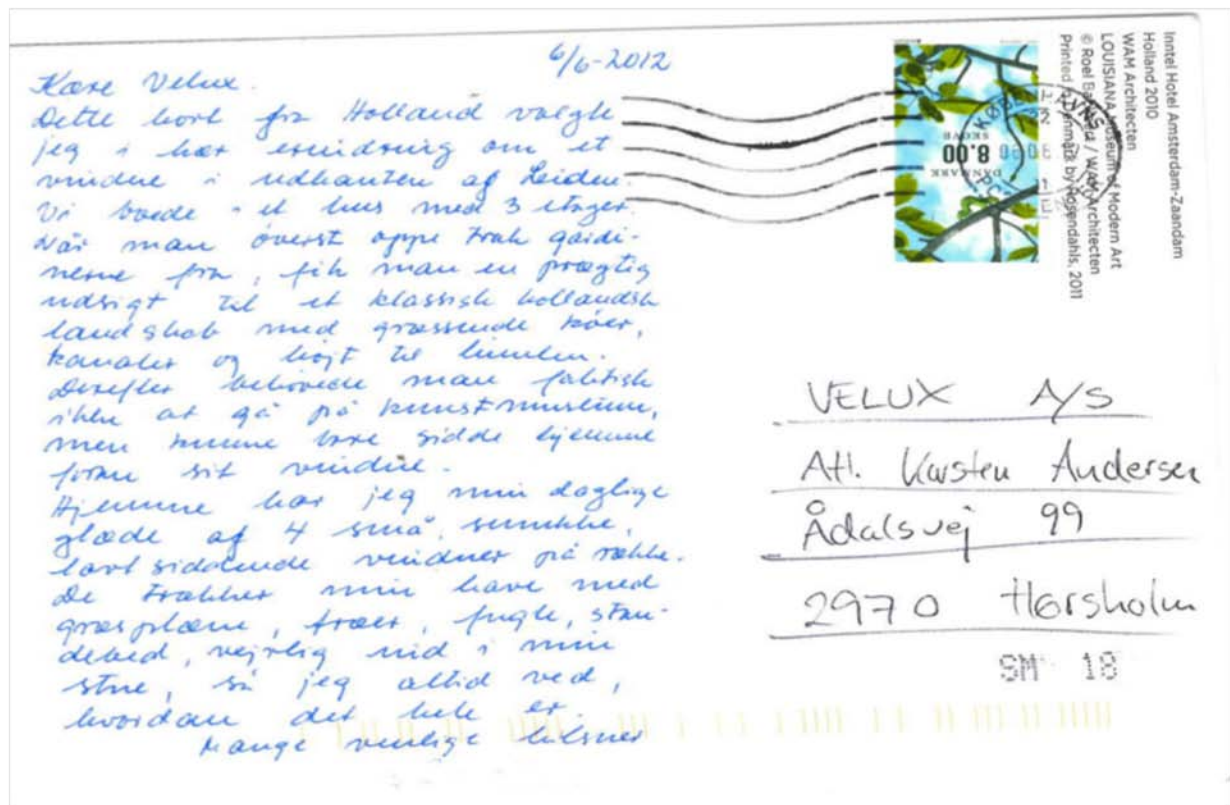 6/6-2012
Kære Velux.
Dette kort fra Holland valgte
jeg i kær erindring om et
vindue i udkanten af Leiden.
Vi boede i et hus med 3 etager.
Når man øverst oppe trak gardi-
nerne fra, fik man en prægtig
udsigt til et klassisk hollandsk
landskab med græssende køer,
kanaler og højt til himlen.
Derefter behøvede man faktisk
ikke at gå på kunstmuseum,
men kunne bare sidde hjemme
foran sit vindue.
Hjemme har jeg min daglige
glæde af 4 små, smukke,
lavt siddende vinduer på række.
De trækker min have med
græsplæne, træer, fugle, stau-
debed, vejrlig ind i min
stue, så jeg altid ved,
hvordan det hele er.
Mange venlige hilsner
DANMARK
8.00
SKOVE
Inntel Hotel Amsterdam-Zaandam
Holland 2010
WAM Architecten
LOUISIANA Museum of Modern Art
© Roel / WAM Architecten
Printed in Denmark by Rosendahls, 2011
VELUX A/S
Att. Karsten Andersen
Ådalsvej 99
2970 Hørsholm
SM 18